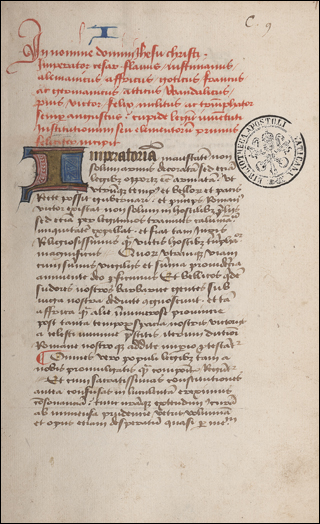 C. 9
In nomine domini Ihesu christi .
Imperator cesar flavius iustinianus
alemanicus affricus goticus francus
ac germanicus atticus wandalicus
pius victor felix inclitus ac triumphator
semp augustus : cupide legum iuventuti
Institutionum seu elementorum primus
feliciter incipit
Imperatoriam maiestatem non
solum armis decoratam sed etiam
legibus oportet esse armatam ut
utrumque tempus et bellorum et pacis
Recte possit gubernari . et princeps Roman9
victor existat non solum in hostilibus preliis
sed etiam per legitimos tramites calumniantium
iniquitates expellat . et fiat tam iuris
Religiosissimus quam victis hostibus
magnificus Quorum utramque viam
vigiliis et summa providentia
annuente deo perficimus Et bellicos quidem
sudores nostros barbarice gentes sub
iuga nostra deducte agnoscunt . et tam
affrica quam alie innumerose provincie
post tanta tempora nostris victoriis
a celesti numine prestitis iterum dicioni
Romane nostroque addite imperio protestantur
Omnes vero populi legibus tam a
nobis promulgatis quam compositis Reguntur
Et cum sacratissimas constitutiones
antea confusas in luculentam ereximus
consonantiam : tunc nostram extendimus curam
ad immensa prudencie veteris volumina
et opus etiam desperatum quasi per medium
BIBLIOTHECA APOSTOLICA VATICANA